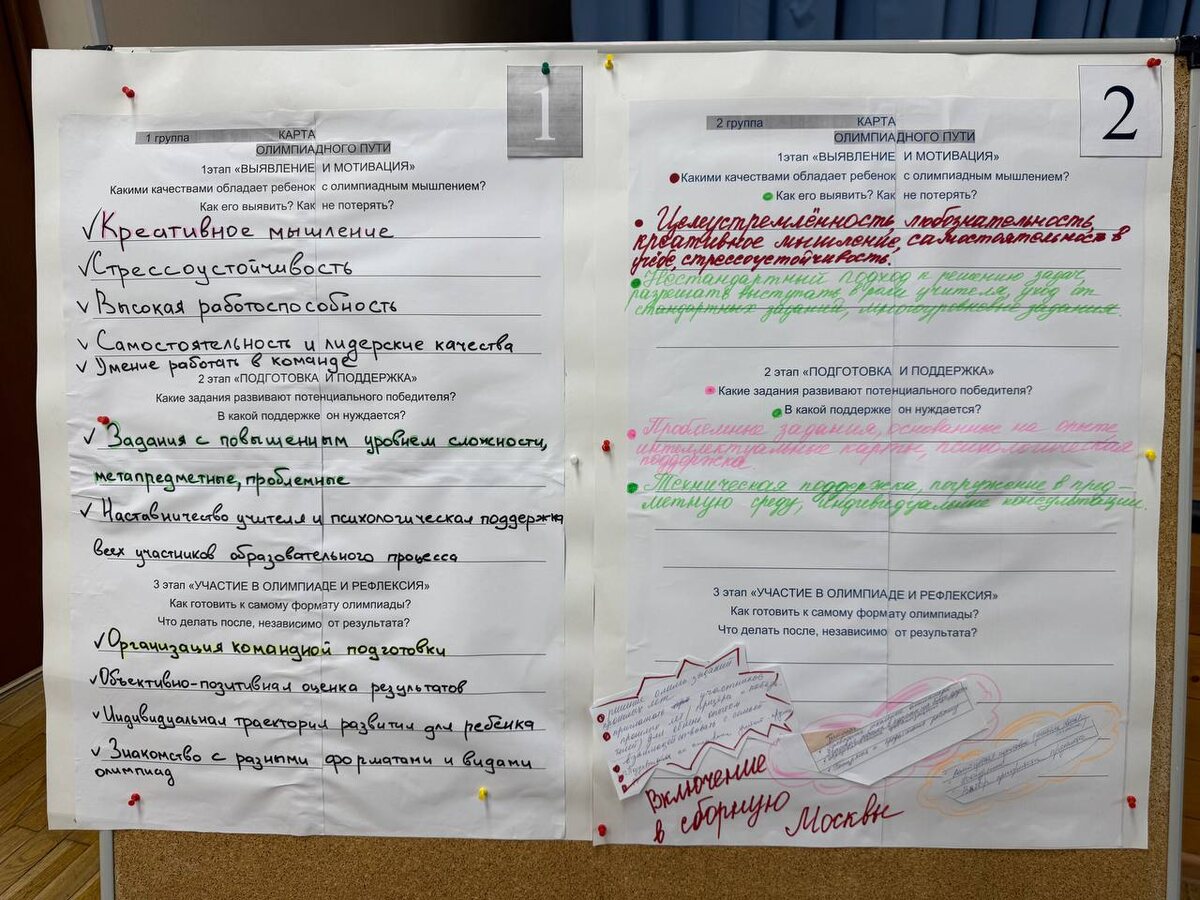 1
1 группа КАРТА
ОЛИМПИАДНОГО ПУТИ
1этап «ВЫЯВЛЕНИЕ И МОТИВАЦИЯ»
Какими качествами обладает ребенок с олимпиадным мышлением?
Как его выявить? Как не потерять?
✓ Креативное мышление
✓ Стрессоустойчивость
✓ Высокая работоспособность
✓ Самостоятельность и лидерские качества
✓ Умение работать в команде
2 этап «ПОДГОТОВКА И ПОДДЕРЖКА»
Какие задания развивают потенциального победителя?
В какой поддержке он нуждается?
✓ Задания с повышенным уровнем сложности,
метапредметные, проблемные
✓ Наставничество учителя и психологическая поддержка
всех участников образовательного процесса
3 этап «УЧАСТИЕ В ОЛИМПИАДЕ И РЕФЛЕКСИЯ»
Как готовить к самому формату олимпиады?
Что делать после, независимо от результата?
✓ Организация командной подготовки
✓ Объективно-позитивная оценка результатов
✓ Индивидуальная траектория развития для ребёнка
✓ Знакомство с разными форматами и видами
олимпиад
2
2 группа КАРТА
ОЛИМПИАДНОГО ПУТИ
1этап «ВЫЯВЛЕНИЕ И МОТИВАЦИЯ»
Какими качествами обладает ребенок с олимпиадным мышлением?
Как его выявить? Как не потерять?
Целеустремлённость, любознательность,
креативное мышление, самостоятельность в
учёбе, стрессоустойчивость.
Нестандартный подход к решению задач,
разрешать выступать в роли учителя, уход от
стандартных заданий, многоуровневые задания.
2 этап «ПОДГОТОВКА И ПОДДЕРЖКА»
Какие задания развивают потенциального победителя?
В какой поддержке он нуждается?
Проблемные задания, основанные на опыте
интеллектуальные карты, психологическая
поддержка
Техническая поддержка, погружение в пред-
метную среду, индивидуальные консультации.
3 этап «УЧАСТИЕ В ОЛИМПИАДЕ И РЕФЛЕКСИЯ»
Как готовить к самому формату олимпиады?
Что делать после, независимо от результата?
решение олимп. заданий
прошлых лет
участников
прошлых лет
взаимодействовать с семьёй
Включение
в сборную
Москвы